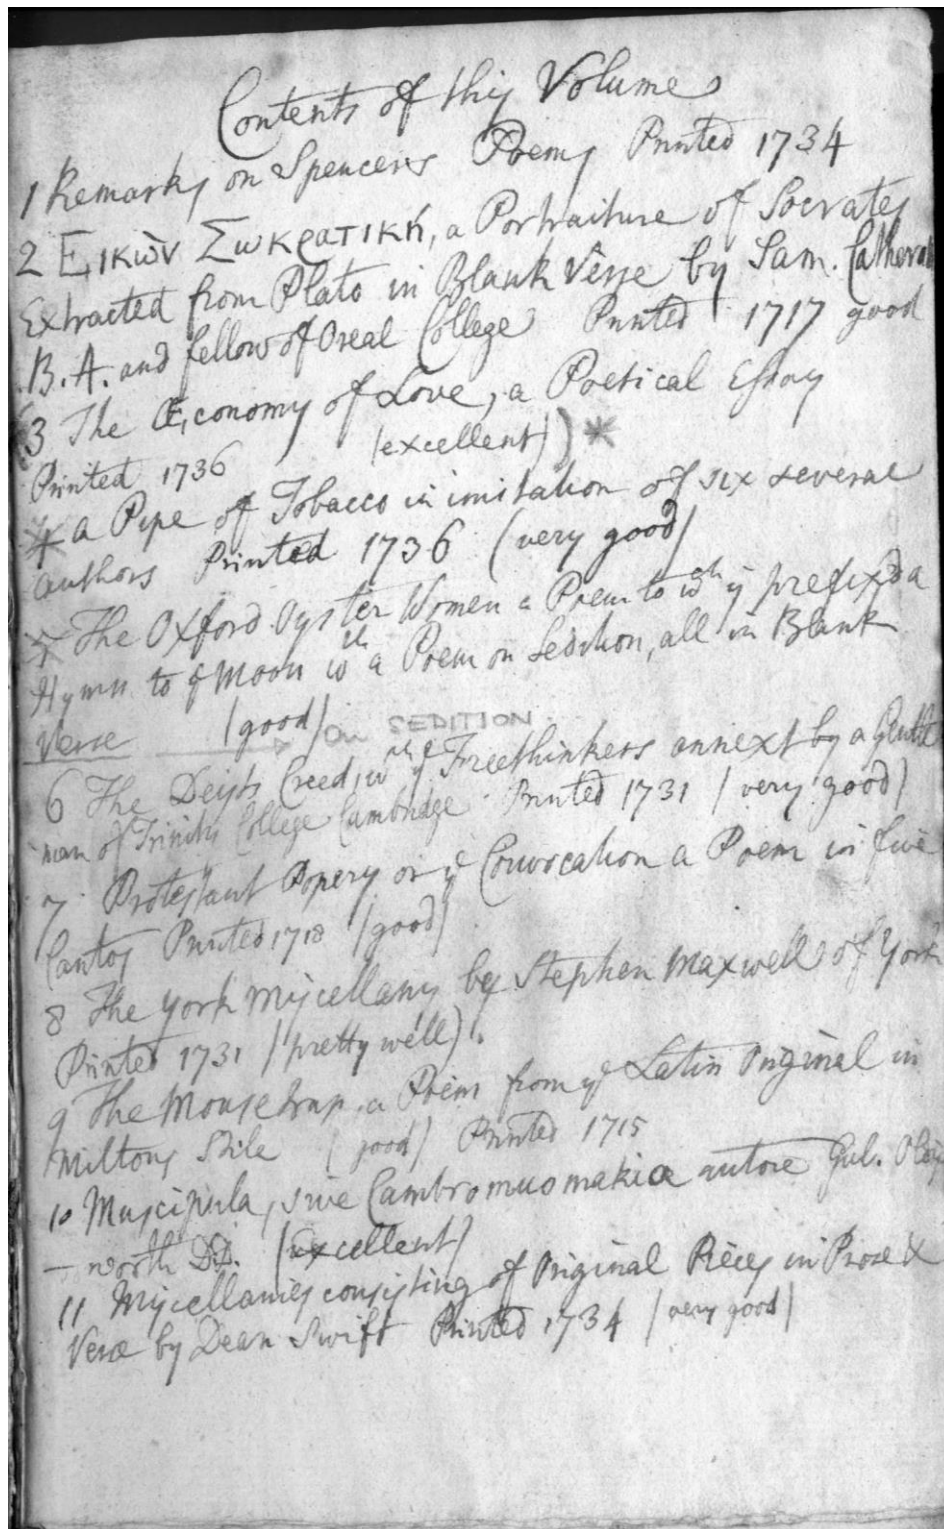 Contents of this Volume
1 Remarks on Spencers Poems Printed 1734
2 Εικὼν Σωκρατική, a Portraiture of Socrates
Extracted from Plato in Blank Verse by Sam. Catherall
B.A. and fellow of Oreal College Printed 1717 good
3 The Œconomy of Love, a Poetical Essay
Printed 1736 (excellent) *
4 a Pipe of Tobacco in imitation of six several
authors Printed 1736 (very good)
5 The Oxford Oyster Women a Poem to wch is prefix'd a
Hymn to ye Moon wth a Poem on Sedition, all in Blank
Verse (good) On SEDITION
6 The Deists Creed, wth ye Freethinkers annext by a Gentle
man of Trinity College Cambridge Printed 1731 (very good)
7 Protestant Popery or ye Convocation a Poem in five
Cantos Printed 1718 (good)
8 The York Miscellany by Stephen Maxwell of York
Printed 1731 (pretty well).
9 The Mousetrap, a Poem from ye Latin Original in
Miltons Stile (good) Printed 1715
10 Muscipula, sive Cambromuomakia autore Gul.
-north DD. (excellent)
11 Miscellanies consisting of Original Pieces in Prose &
Verse by Dean Swift Printed 1734 (very good)